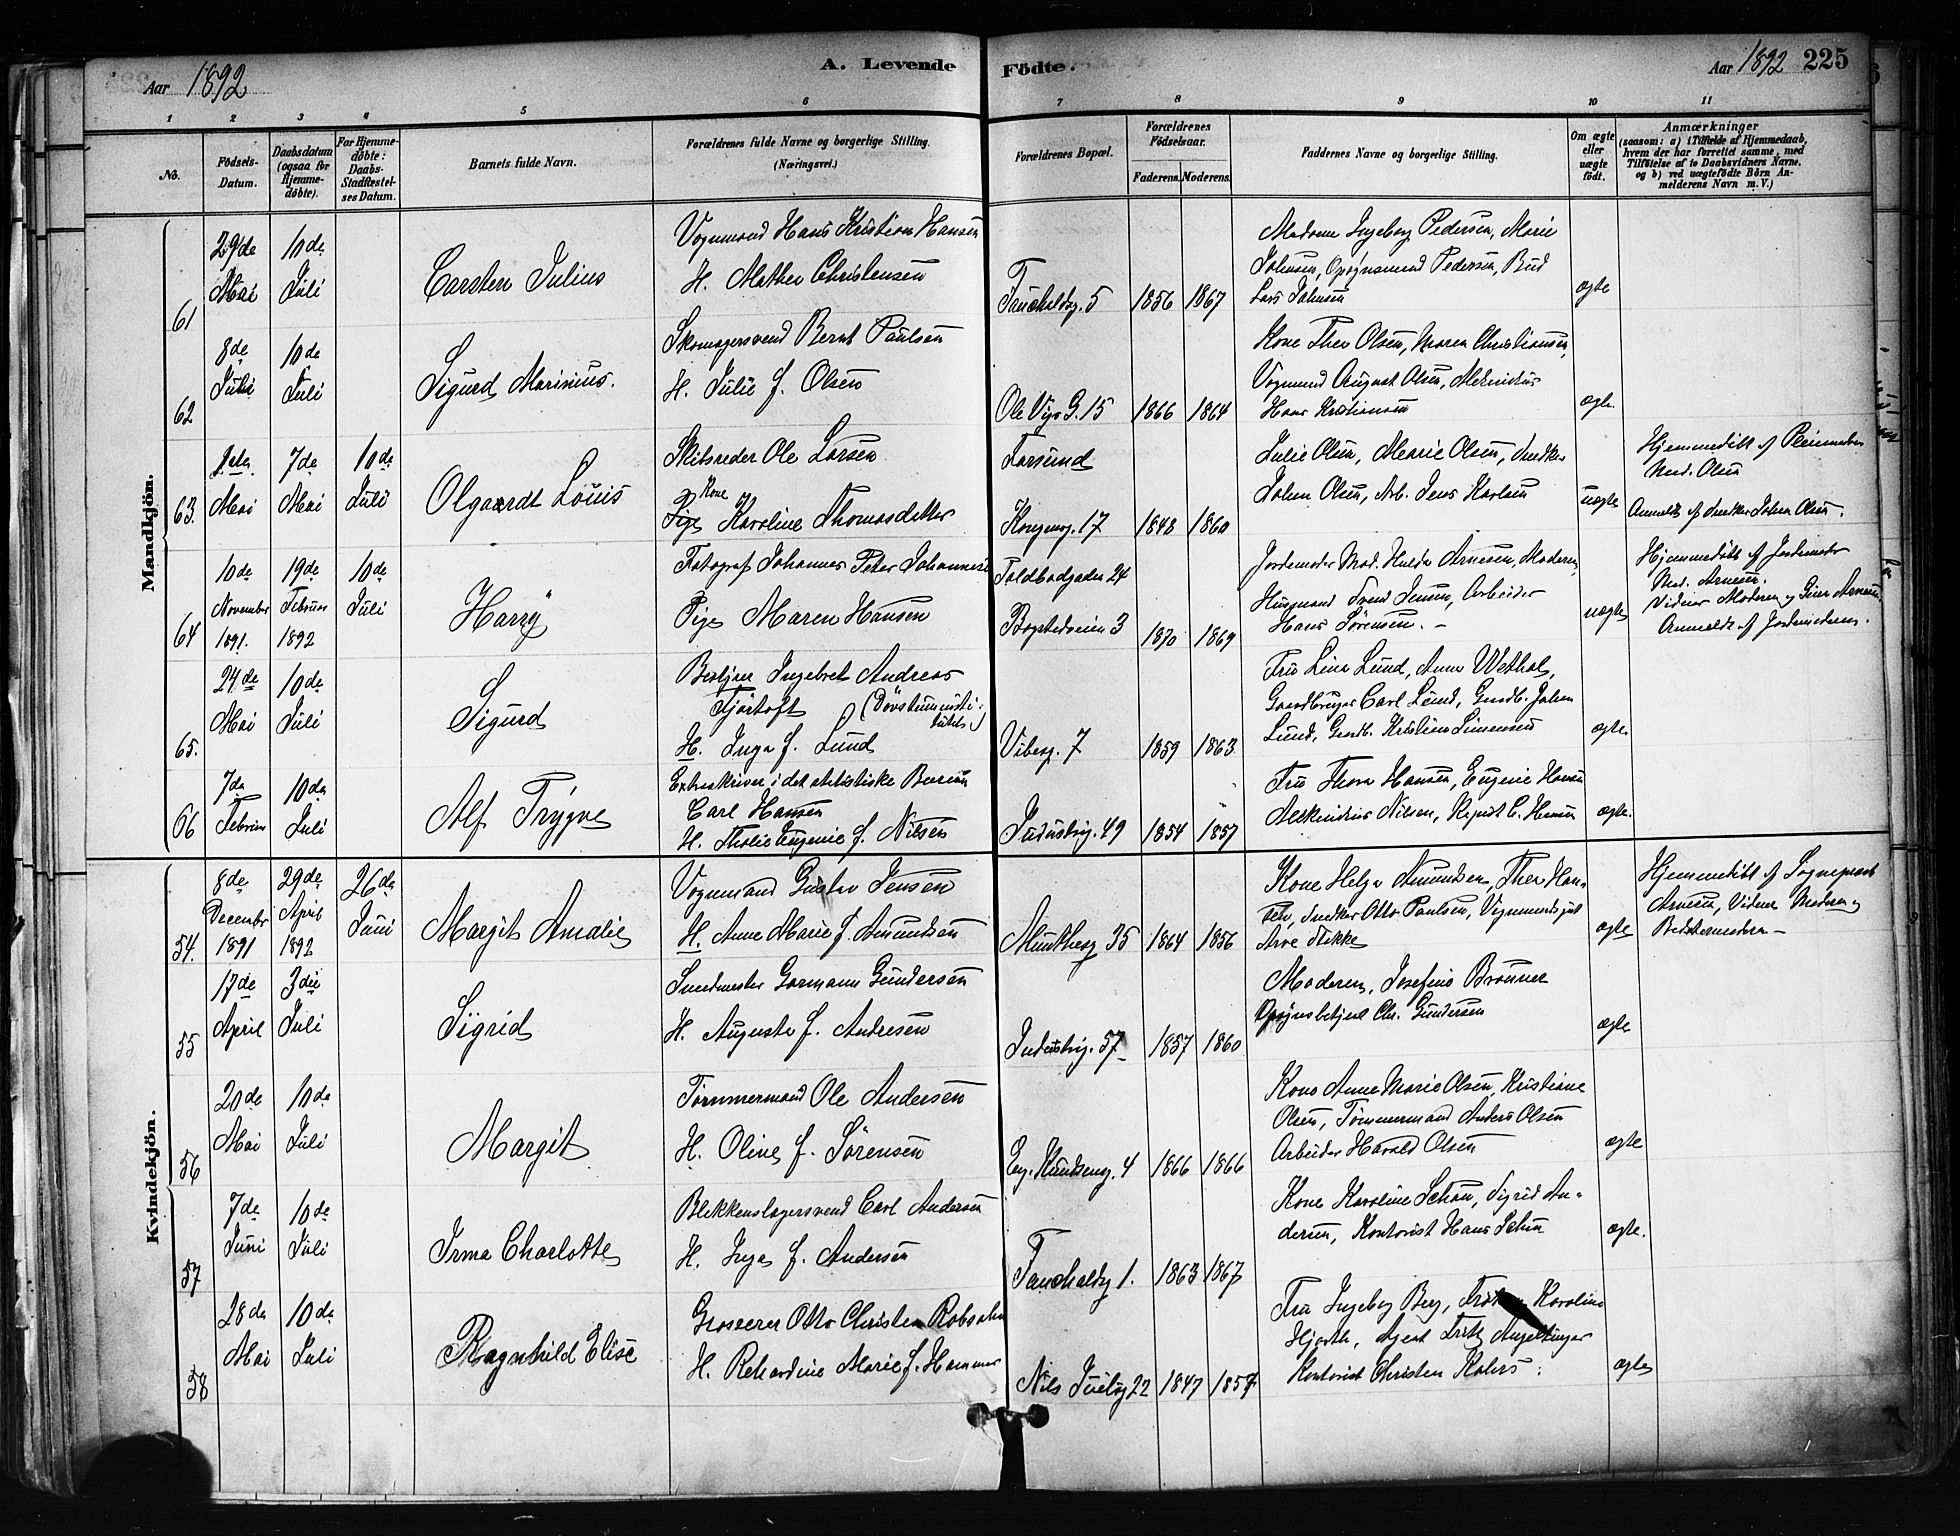 Aar 1892
A. Levende Födte.
Aar 1892 225
1 2 3 4 5 6 7 8 9 10 11
No.
Födsels-Datum.
Daabsdatum (ogsaa for Hjemme-döbte).
For Hjemme-döbte: Daabs-Stadfæstel-ses Datum.
Barnets fulde Navn.
Forældrenes fulde Navne og borgerlige Stilling.
(Næringsvei.)
Forældrenes Bopæl.
Forældrenes Födselsaar.
Faderens. Moderens.
Faddernes Navne og borgerlige Stilling.
Om ægte eller uægte født.
Anmærkninger
(saasom: a) i Tilfælde af Hjemmedaab,
hvem der har forrettet samme, med
Tilföielse af to Daabsvidners Navne,
og b) ved uægtefödte Börn An-
melderens Navn m. V.)
Mandkjön.
61
29de Mai
10de Juli
Carsten Julius
Vognmand Hans Kristian Hansen
H. Mathea Christensen
5
1856 1867
Madame Ingeborg Pedersen, Marie
Johnsen, Opsynsmand Pedersen, Bud
Lars Johnsen
ægte
62
8de
10de Juli
Sigurd Marinius.
Skomagersvend Bernt Paulsen
H. Julie f. Olsen
Ole Vigs G. 15
1866 1864
Kone Thea Olsen, Maren Christiansen,
Vognmand August Olsen,
Hans Kristiansen
ægte
63.
Mai
7de Mai
10de Juli
Olgardt Louis
Skibsreder Ole Larsen
Kone
Pige Karoline Thomasdatter
Farsund
Kongensg. 17
1848 1860
Julie Olsen, Marie Olsen, Snedker
Johan Olsen, Arb. Jens Karlsen
uægte
Hjemmedöbt af
Mad. Olsen
Anmeldt af Snedker Johan Olsen.
64
10de November 1891.
19de Februar 1892
10de Juli
Harry
Fotograf Johannes Peter Johannesen
Pige Maren Hansen
Toldbodgaden 24
Bogstadveien 3
1870 1869
Jordemoder Mad. Hulda Arnesen, Moderen,
Husmand Svend Jensen, Arbeider
Hans Sörensen.
uægte
Hjemmedöbt af Jordemoder
Mad. Arnesen.
Vidner Moderen og Arnesen.
Anmeldt af Jordemoderen.
65.
24de Mai
10de Juli
Sigurd
Bestyrer Ingebret Andreas
Fjörtoft (Dövstumminsti-
tutet)
H. Inga f. Lund
Vibesg. 7
1859 1863
Fru Lina Lund, Anna Wethal,
Gaardbruger Carl Lund, Gaardb. Johan
Lund, Gaardb. Kristian Simensen
ægte
66
7de
10de Juli
Alf Trygve
Extraskriver i det statistiske Bureau
Carl Hansen
H. Thalie Eugenie f. Nilsen
Industrig. 49
1854 1857
Fru Thora Hansen, Eugenie Hansen
Nilsen, C. Hansen
ægte.
Kvindekjön.
54.
8de December 1891
29de April 1892
26de Juni
Margit Amalie
Vognmand Gustav Jensen
H. Anne Marie f. Amundsen
35
1864 1856
Kone Helga Amundsen, Thea Han-
sen, Snedker Otto Paulsen,
ægte
Hjemmedöbt af Sogneprest
Arnesen, Vidner Moderen og
Bedstemoderen
55
17de April
3die Juli
Sigrid
Smedmester Gormann Gundersen
H. Augusta f. Andresen
Industrig. 57
1857 1860
Moderen, Josefine Brönner
Opsynsbetjent Chr. Gundersen
ægte
56
20de Mai
10de Juli
Margit
Tömmermand Ole Andersen
H. Oline f. Sörensen
4
1866 1866
Kone Anne Marie Olsen, Kristiane
Olsen, Tömmermand Anders Olsen
Arbeider Harald Olsen
ægte
57
7de Juni
10de Juli
Irma Charlotte
Blikkenslagersvend Carl Andersen
H. Inga f. Andersen
1.
1863 1867
Kone Karoline Schau, Sigrid An-
dersen, Kontorist Hans
ægte.
58
28de Mai
10de Juli
Ragnhild Elise
Grosserer Otto Christian Robsahm
H. Marie f. Hammer
Nils Juelsg 22
1847 1857
Fru Ingeborg Berg, Karoline
Hjorth, Agent Fritz
Kontorist Christen
ægte